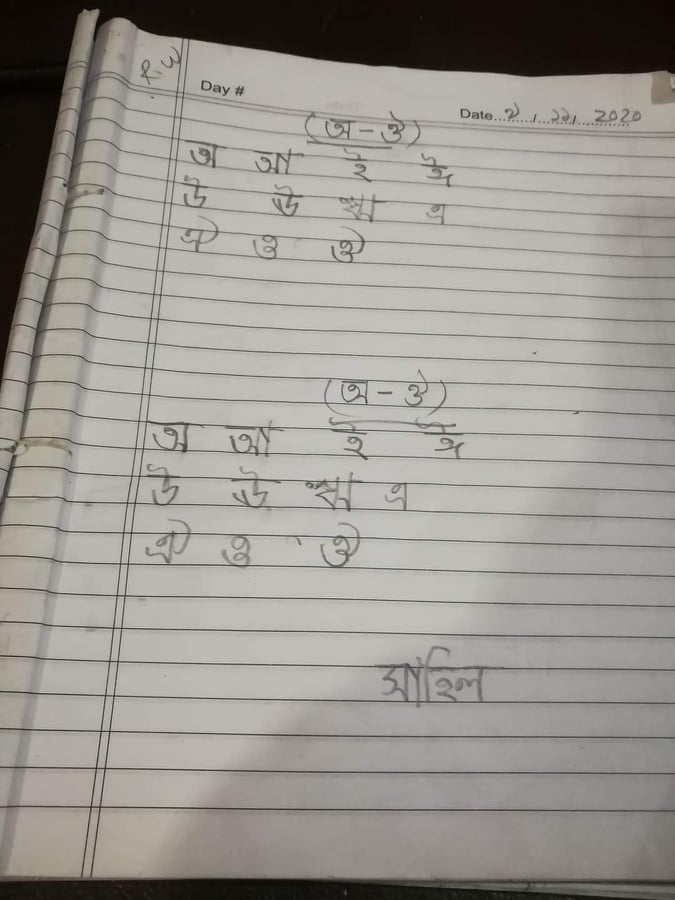 হ.ও
Day #
Date...২../..১১/...2020
(অ - ঔ)
অ আ ই ঈ
উ ঊ ঋ এ
ঐ ও ঔ
(অ - ঔ)
অ আ ই ঈ
উ ঊ ঋ এ
ঐ ও ঔ
সাহিল